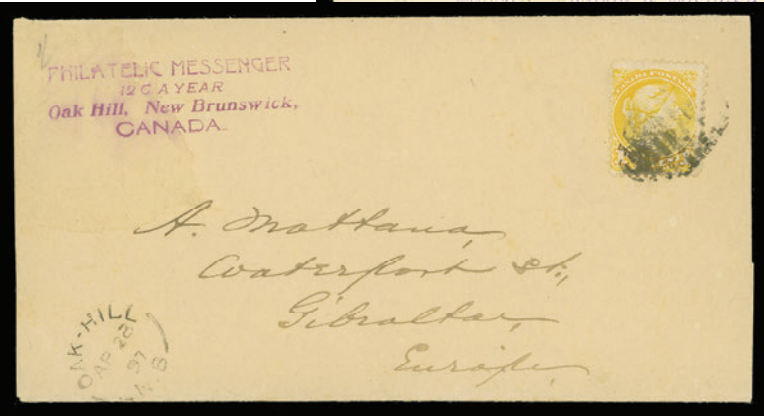 PHILATELIC MESSENGER
12 C A YEAR
Oak Hill, New Brunswick,
CANADA.
CANADA POSTAGE
A. Mattana,
Waterport St.,
Gibraltar,
Europe,
OAK-HILL
AP 28
97
N.B